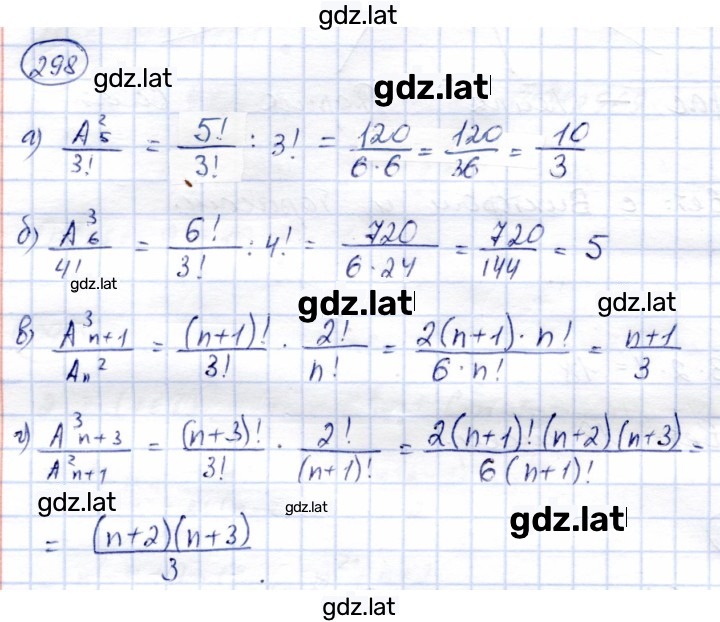 gdz.lat
298
gdz.lat
gdz.lat
а) A₅²/3! = 5!/3! : 3! = 120/6·6 = 120/36 = 10/3
б) A₆³/4! = 6!/3! : 4! = 720/6·24 = 720/144 = 5
gdz.lat
gdz.lat
gdz.lat
в) A³n+1/An² = (n+1)!/3! · 2!/n! = 2(n+1)·n!/6·n! = n+1/3
г) A³n+3/A²n+1 = (n+3)!/3! · 2!/(n+1)! = 2(n+1)!(n+2)(n+3)/6(n+1)! =
gdz.lat
gdz.lat
gdz.lat
= (n+2)(n+3)/3.
gdz.lat